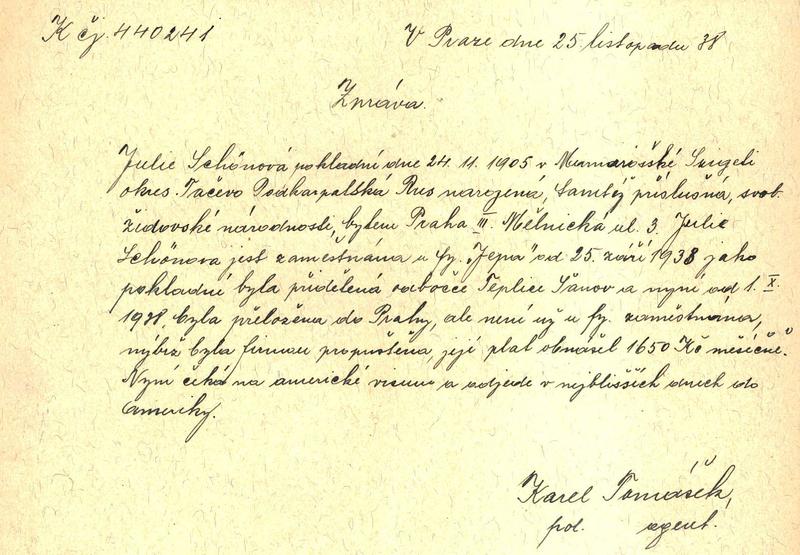 K čj. 440241
V Praze dne 25. listopadu 38
Zpráva.
Julie Schönová pokladní dne 24. 11. 1905 v Mumarošské Szigeli
okres Tačevo Podkarpatská Rus narozená, tamtéž příslušná, svob.
židovské národnosti, bytem Praha III. Mělnická ul. 3. Julie
Schönova jest zaměstnána u fy. „Jepa" od 25. září 1938 jako
pokladní byla přidělená odbočce Teplice Šanov a nyní od 1. X.
1938, byla přeložena do Prahy, ale není už u fy. zaměstnána,
nýbrž byla firmou propuštěna, její plat obnášel 1650 Kč měsíčně.
Nyní čeká na americké visum a odjede v nejbližších dnech do
Ameriky.
Karel Tomášek,
pol. agent.